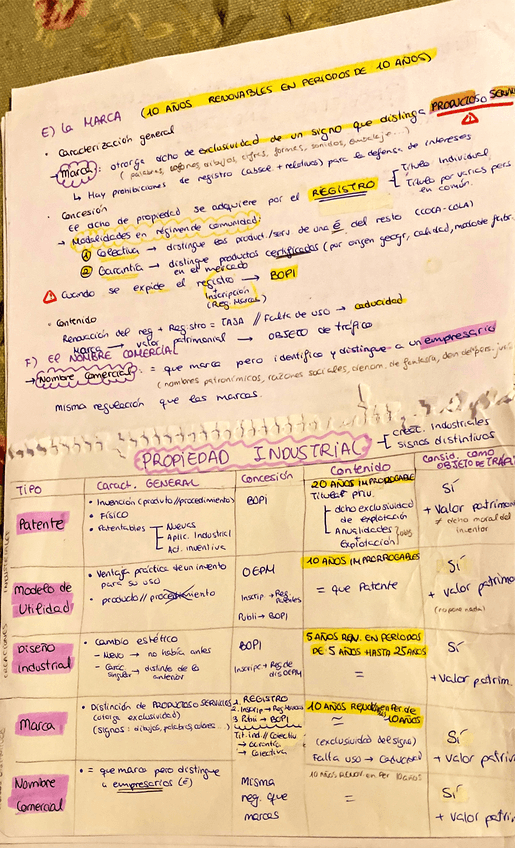 E) La MARCA (10 AÑOS RENOVABLES EN PERIODOS DE 10 AÑOS)
• Caracterización general
→ Marca: otorga dcho de exclusividad de un signo que distinga PRODUCTOS O SERVI
(palabras, dibujos, cifras, formas, sonidos, embalaje...)
↳ Hay prohibiciones de registro (absol. + relativas) para la defensa de intereses
• Concesión
El dcho de propiedad se adquiere por el REGISTRO
Título Individual
Título por varias pers en común.
→ Modalidades en régimen de comunidad:
① Colectiva → distingue los product./serv. de una É del resto (COCA-COLA)
② Garantía → distingue productos certificados (por origen geogr, calidad, modo de fabr.
en el mercado
Cuando se expide el registro → BOPI
Inscripción
(Reg. Marcas)
• Contenido
Renovación del reg + Registro = TASA // Falta de uso → caducidad
Marca → valor patrimonial → OBJETO de tráfico
F) El NOMBRE COMERCIAL
→ Nombre Comercial: = que marca pero identifica y distingue a un empresario
(nombres patronímicos, razones sociales, denom. de fantasía, den. de pers. jurí
Misma regulación que las marcas.
PROPIEDAD INDUSTRIAL
creac. Industriales
signos distintivos
TIPO
Caract. GENERAL
Concesión
Contenido
Consid. como OBJETO DE TRÁFI
CREACIONES INDUSTRIALES
Patente
• Invención (producto//procedimiento)
• Físico
• Patentables
Nuevas
Aplic. Industrial
Act. inventiva
BOPI
20 AÑOS IMPRORROGABLE
Titular priv.
dcho exclusividad
de explotación
Anualidades
Explotación
SÍ
+ Valor patrimon
≠ dcho moral del
inventor
Modelo de
Utilidad
• Ventaja práctica de un invento
para su uso
• producto // procedimiento
OEPM
Inscrip → Reg.
Patentes
Publi → BOPI
10 AÑOS IMPRORROGABLES
= que Patente
SÍ
+ valor patrimo
Diseño
Industrial
• Cambio estético
- Nuevo → no había antes
- Carác. singular → distinto de lo
anterior
BOPI
Inscripc → Reg de
dis OEPM
5 AÑOS REN. EN PERIODOS
DE 5 AÑOS HASTA 25 AÑOS
=
SÍ
+ valor patrim.
Marca
• Distinción de PRODUCTOS O SERVICIOS
(otorga exclusividad)
(signos: dibujos, palabras, colores...)
1. REGISTRO
2. Inscrip → Reg Marcas
3. Publi → BOPI
Tít. ind. // Colectiv
→ Garantía
→ Colectiva
10 AÑOS Renov en Per de
10 AÑOS
≃
(exclusividad del signo)
Falta uso → Caducidad
SÍ
+ valor patrim
Nombre
Comercial
• = que marca pero distingue
a empresarios (É)
Misma
reg. que
marcas
10 AÑOS, RENOV en Per 10 AÑOS
=
SÍ
+ valor patrim